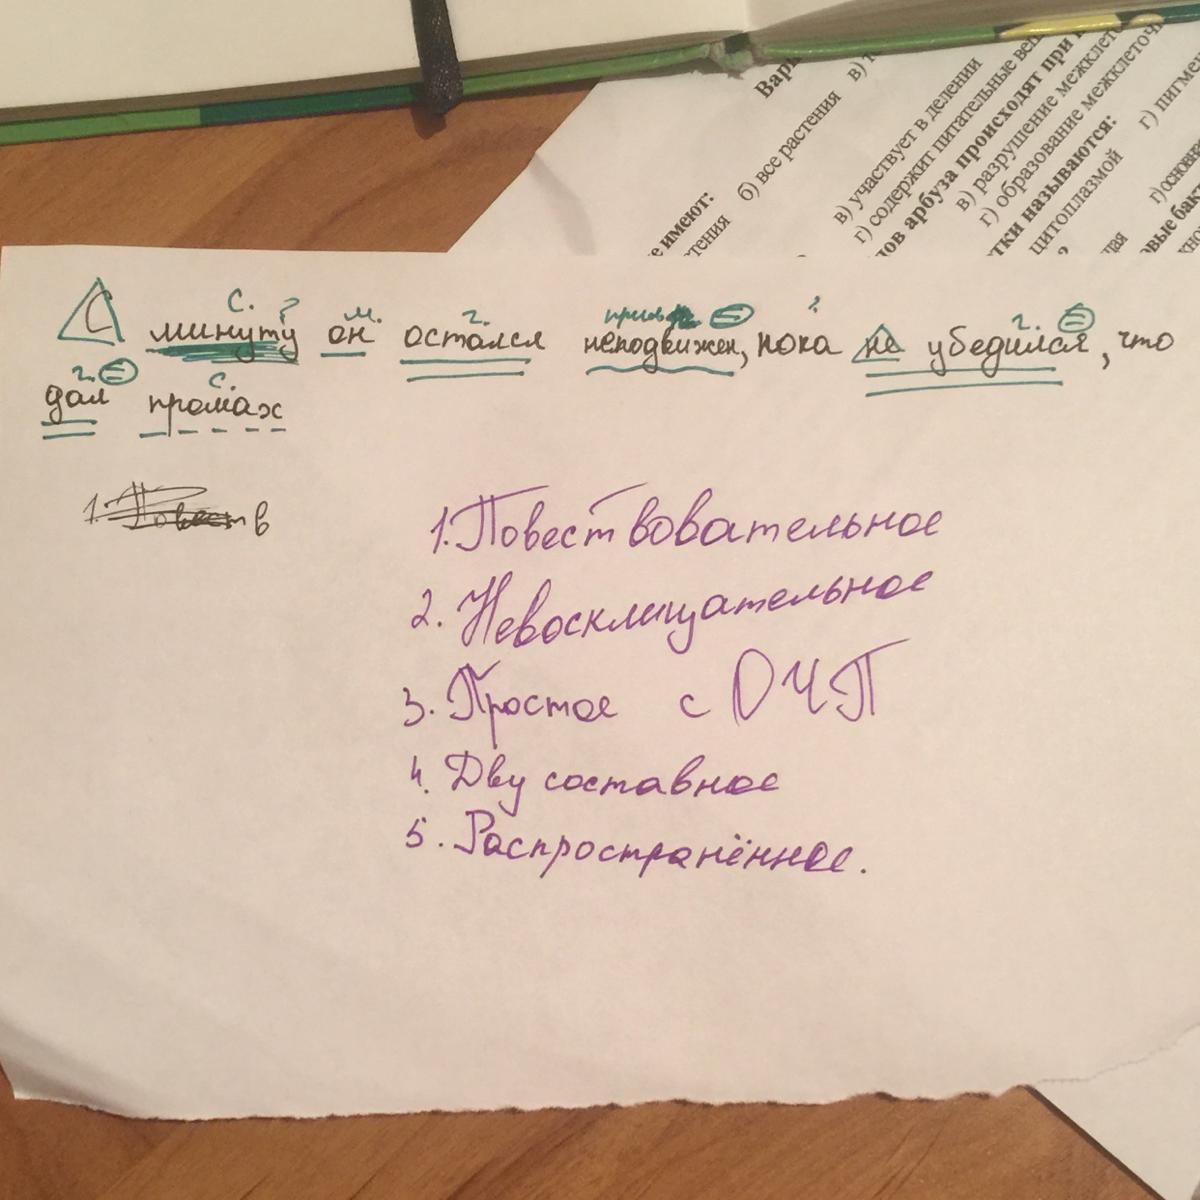 Вари
б) все растения в)
в) участвует в делении
г) содержит питательные ве
ов арбуза происходят при
в) разрушение межклето
г) образование межклеточ
тки называются:
цитоплазмой г) пигмен
е имеют:
стения
щая г) основна
овые бак
С с. ? м. г. прил = ? г. =
минуту он остался неподвижен, пока не убедился, что
г. = с.
дал промах
1. Повеств
1. Повествовательное
2. Невосклицательное
3. Простое с ОЧП
4. Двусоставное
5. Распространённое.